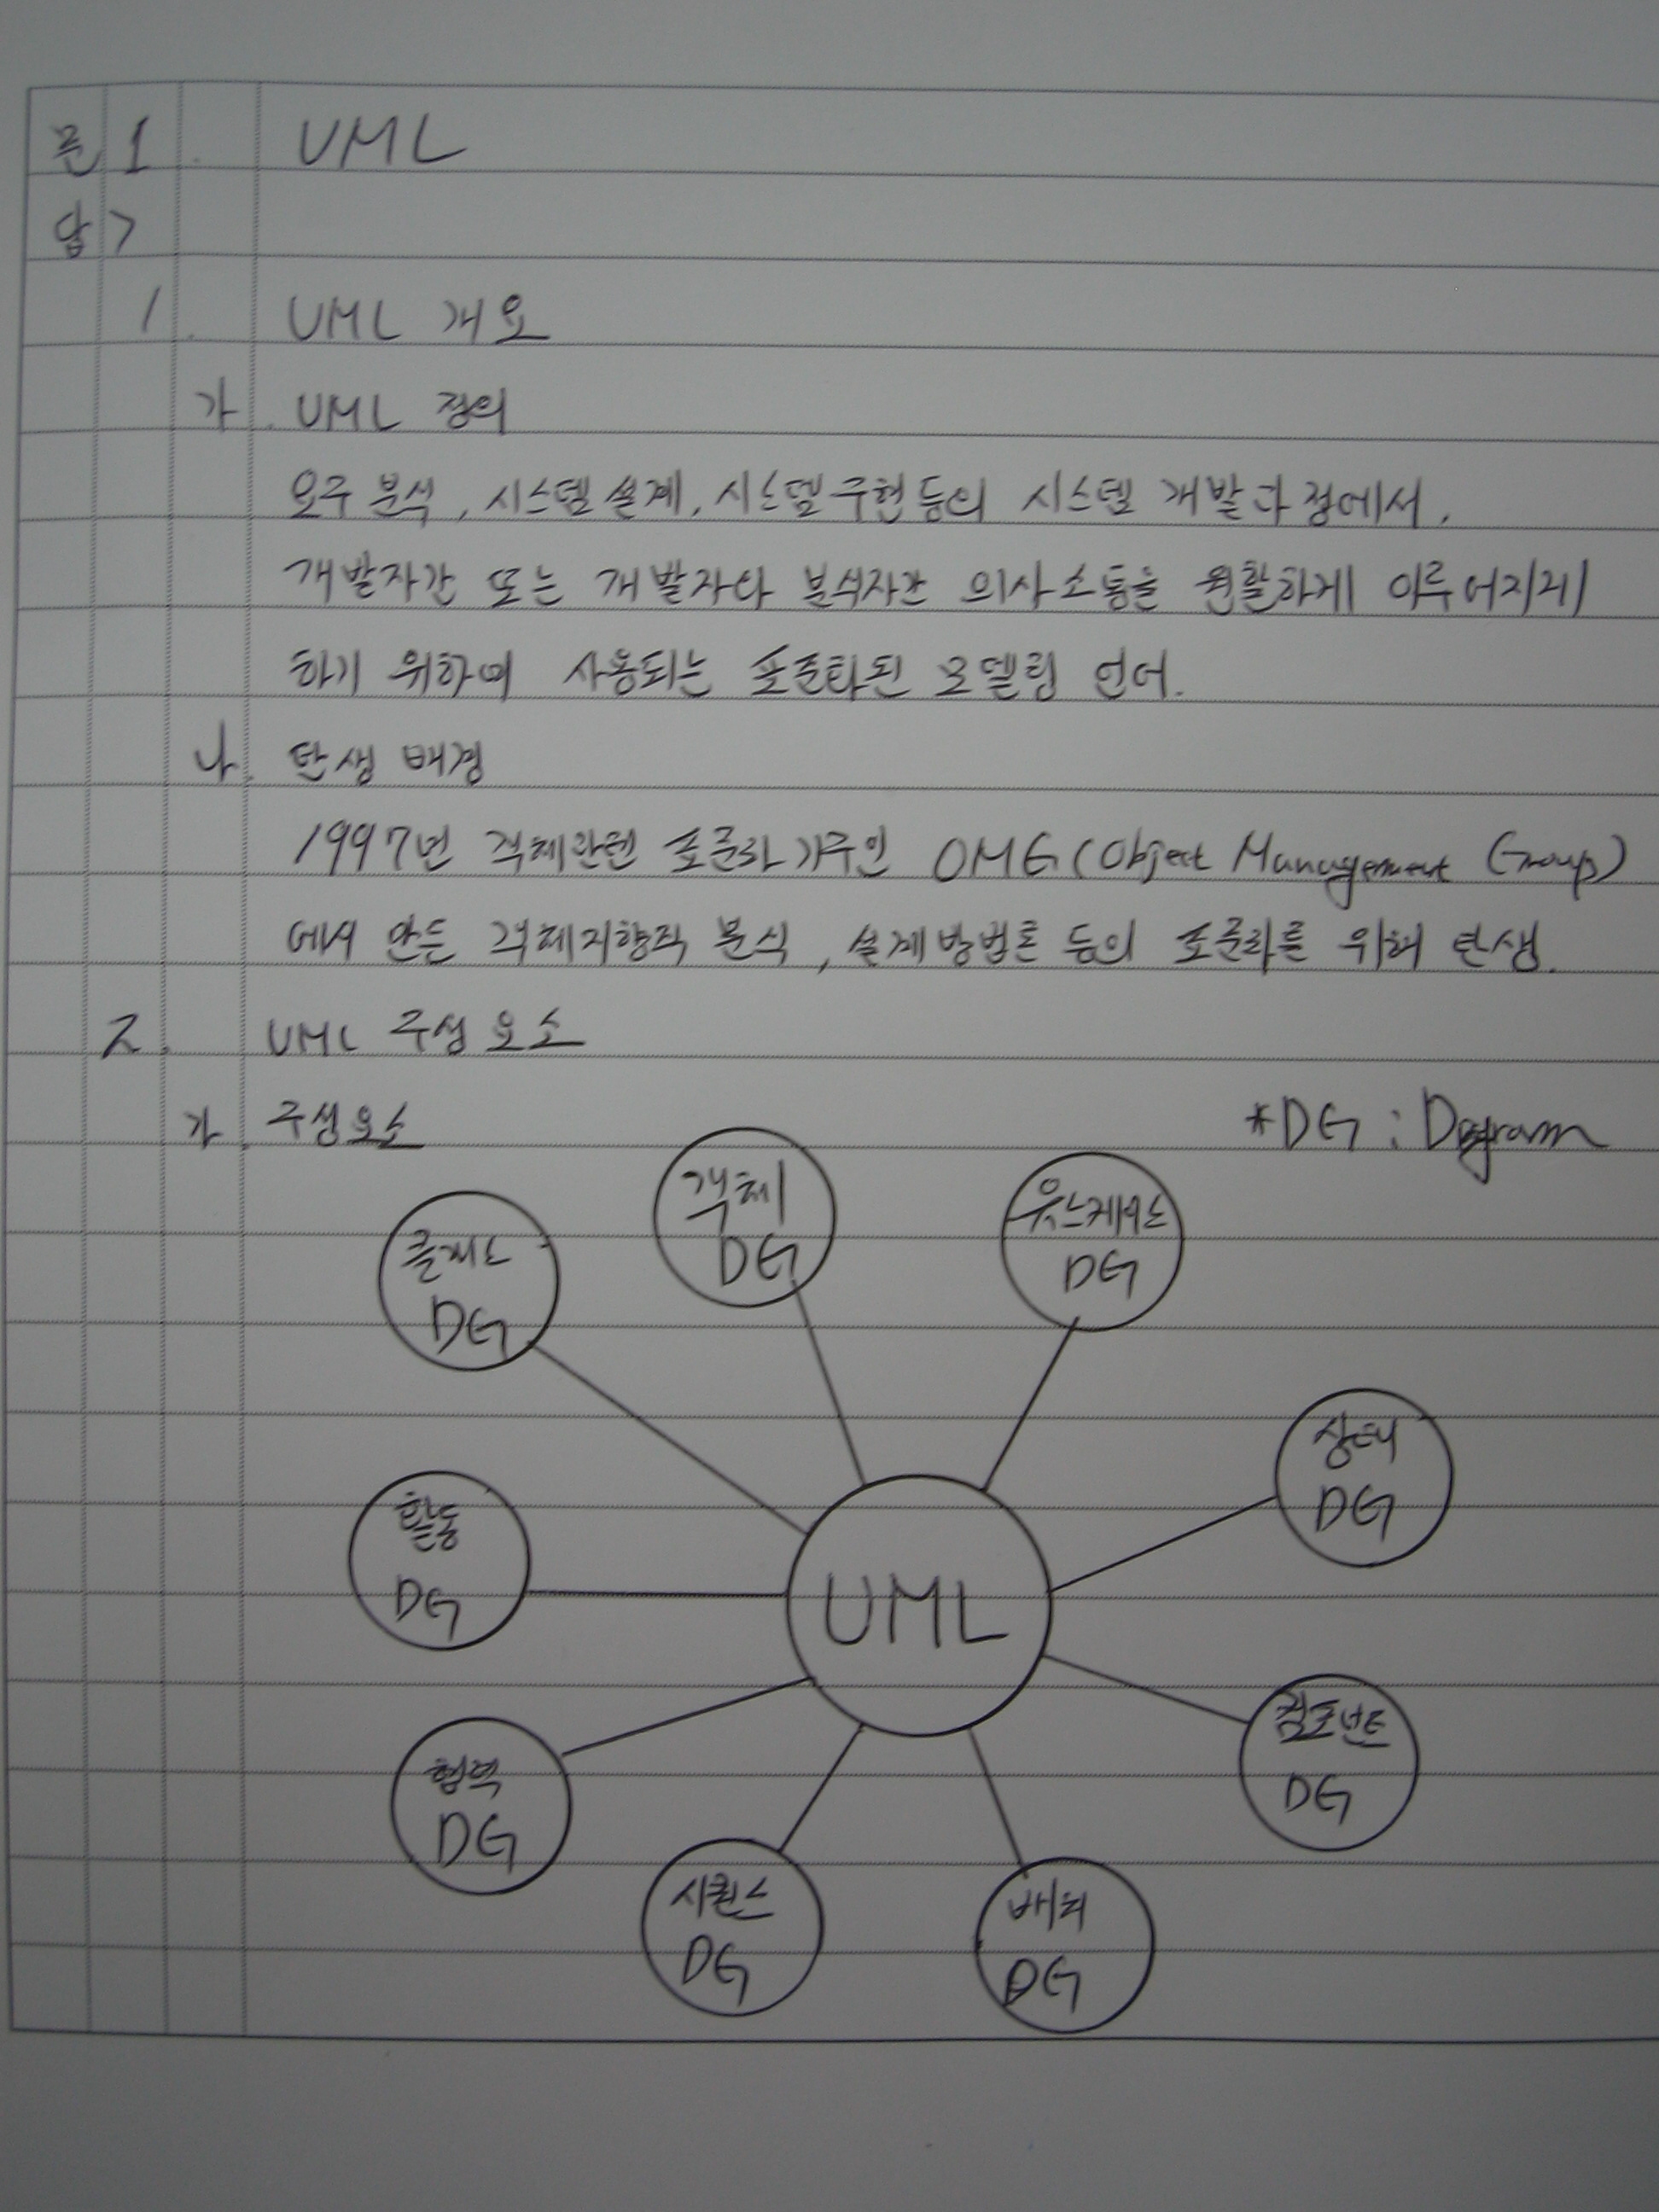 문 1. UML
답>
1. UML 개요
가. UML 정의
요구 분석, 시스템 설계, 시스템 구현 등의 시스템 개발 과정에서,
개발자간 또는 개발자와 분석자간 의사소통을 원활하게 이루어지게
하기 위하여 사용되는 표준화된 모델링 언어.
나. 탄생 배경
1997년 객체관련 표준화 기구인 OMG (Object Management Group)
에서 만든 객체지향적 분석, 설계방법론 등의 표준화를 위해 탄생.
2. UML 구성 요소
가. 구성요소 *DG : Diagram
클래스 DG
객체 DG
유스케이스 DG
상태 DG
활동 DG
UML
컴포넌트 DG
협력 DG
시퀀스 DG
배치 DG